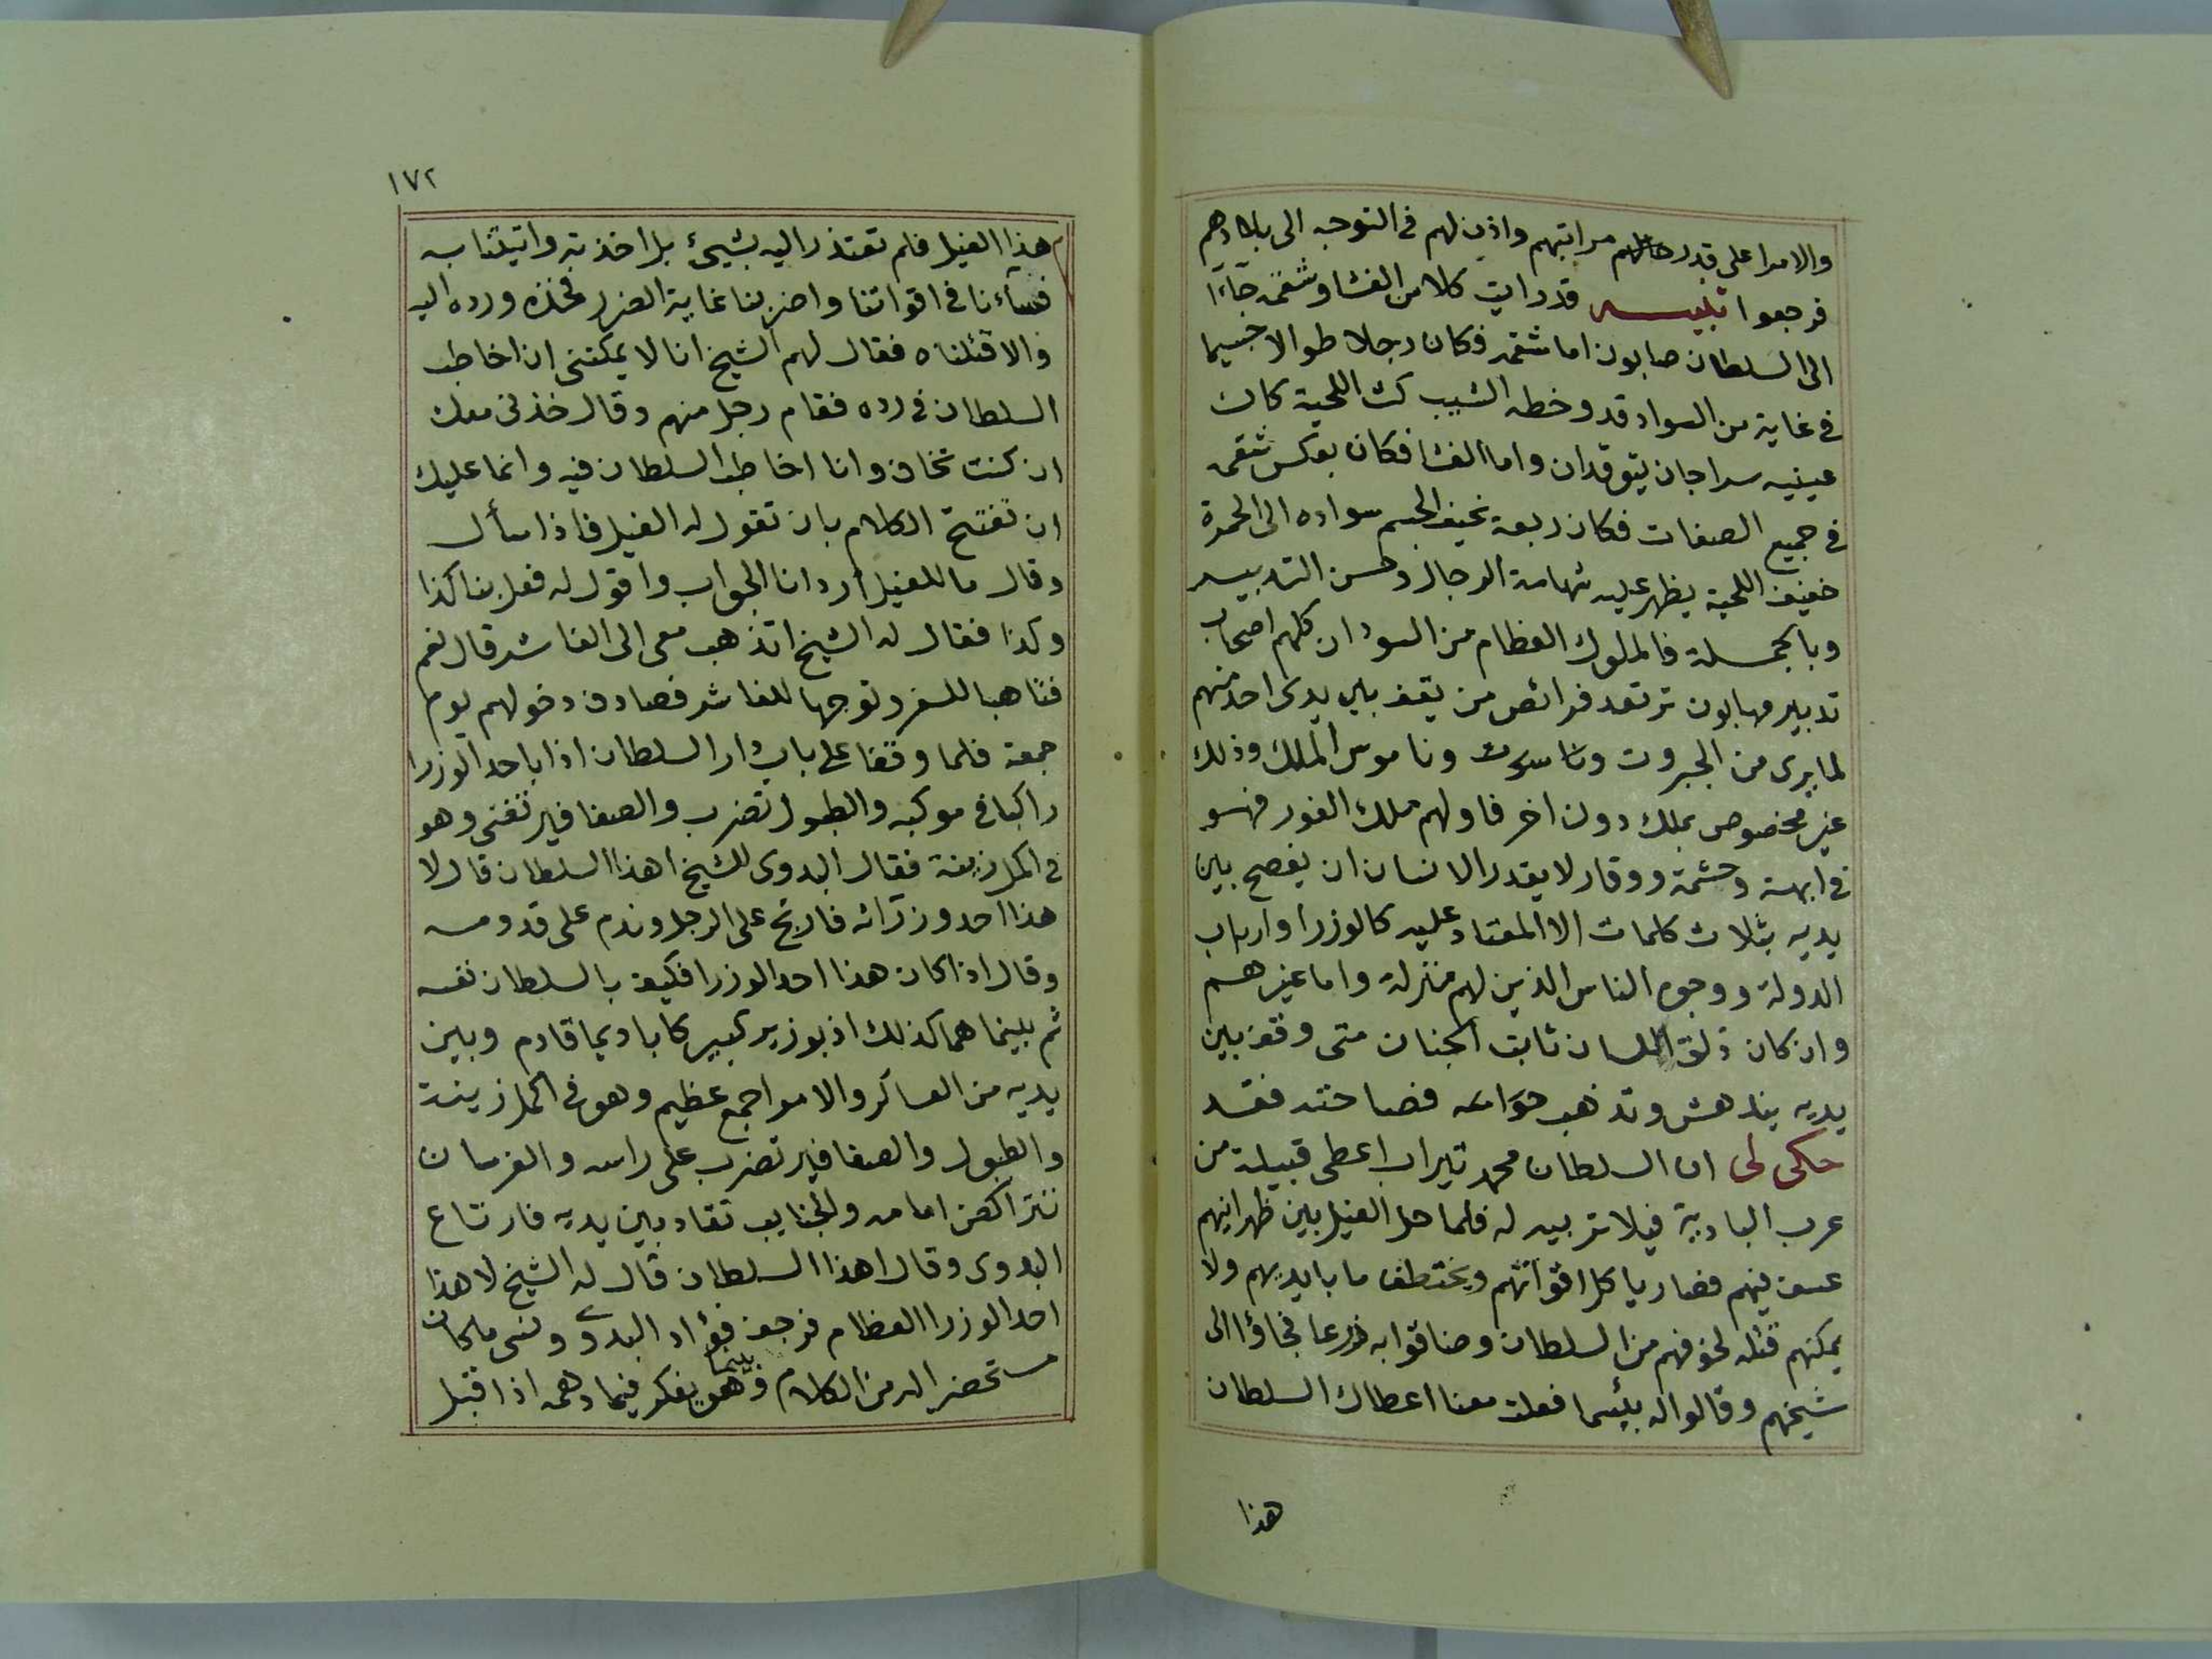 والامرا على قدر مراتبهم واذن لهم فى التوجه الى بلادهم
فرجعوا تنبيه قد رايت كلا من الفشا وشقمه جاءا
الى السلطان صابون اما شقمه فكان رجلا طوالا جسيما
فى غاية من السواد قد وخطه الشيب كث اللحية كان
عينيه سراجان يتوقدان واما الفشا فكان بعكس شقمه
فى جميع الصفات فكان ربعة نحيف الجسم سواده الى الحمرة
خفيف اللحية يظهر عليه شهامة الرجال وحسن التدبير
وبالجملة فالملوك العظام من السودان كلهم اصحاب
تدبير مهابون ترتعد فرائص من يقف بين يدى احد منهم
لما يرى من الجبروت وناسوت وناموس الملك وذلك
غير مخصوص بملك دون اخر فاولهم ملك الفور فهو
فى ابهة وحشمة ووقار لا يقدر الانسان ان يفصح بين
يديه بثلاث كلمات الا المعتاد عليه كالوزرا وارباب
الدولة ووجوه الناس الذين لهم منزلة واما غيرهم
وان كان ذلق اللسان ثابت الجنان متى وقف بين
يديه يندهش وتذهب حواسه فصاحته فقد
حكى لى ان السلطان محمد تيراب اعطى قبيلة من
عرب البادية فيلا تربيه له فلما حل الفيل بين ظهرانيهم
عسف فيهم فصار ياكل اقواتهم ويختطف ما بايديهم ولا
يمكنهم قتله لخوفهم من السلطان وضاقوا به ذرعا فجاؤا الى
شيخهم وقالوا له بئسما فعلت معنا اعطاك السلطان
هذا
١٧٢
هذا الفيل فلم تعتذر اليه بشيئ بل اخذته واتيتنا به
فساءنا فى اقواتنا واضر بنا غاية الضرر فخذه ورده اليه
والا قتلناه فقال لهم الشيخ انا لا يمكننى ان اخاطب
السلطان فى رده فقام رجل منهم وقال خذنى معك
ان كنت تخاف وانا اخاطب السلطان فيه وانما عليك
ان تفتتح الكلام بان تقول له الفيل فاذا سأل
وقال ما للفيل أرد انا الجواب واقول له فعل بنا كذا
وكذا فقال له الشيخ اتذهب معى الى الفاشر قال نعم
فتاهبا للسفر وتوجها للفاشر فصادف دخولهم يوم
جمعة فلما وقفا على باب دار السلطان اذا باحد الوزرا
راكبا فى موكبه والطبول تضرب والصفافير تغنى وهو
فى اكمل زينة فقال البدوى للشيخ اهذا السلطان قال لا
هذا احد وزرائه فارتج على الرجل وندم على قدومه
وقال اذا كان هذا احد الوزرا فكيف بالسلطان نفسه
ثم بينما هما كذلك اذ بوزير كبير كابا ديما قادم وبين
يديه من العساكر والامرا جمع عظيم وهو فى اكمل زينة
والطبول والصفافير تضرب على راسه والفرسان
تتراكض امامه والجنايب تقاد بين يديه فارتاع
البدوى وقال اهذا السلطان قال له الشيخ لا هذا
احد الوزرا العظام فرجف فؤاد البدوى ونسى ما كان
مستحضرا له من الكلام وبينما هو يفكر فيما دهمه اذ اقبل